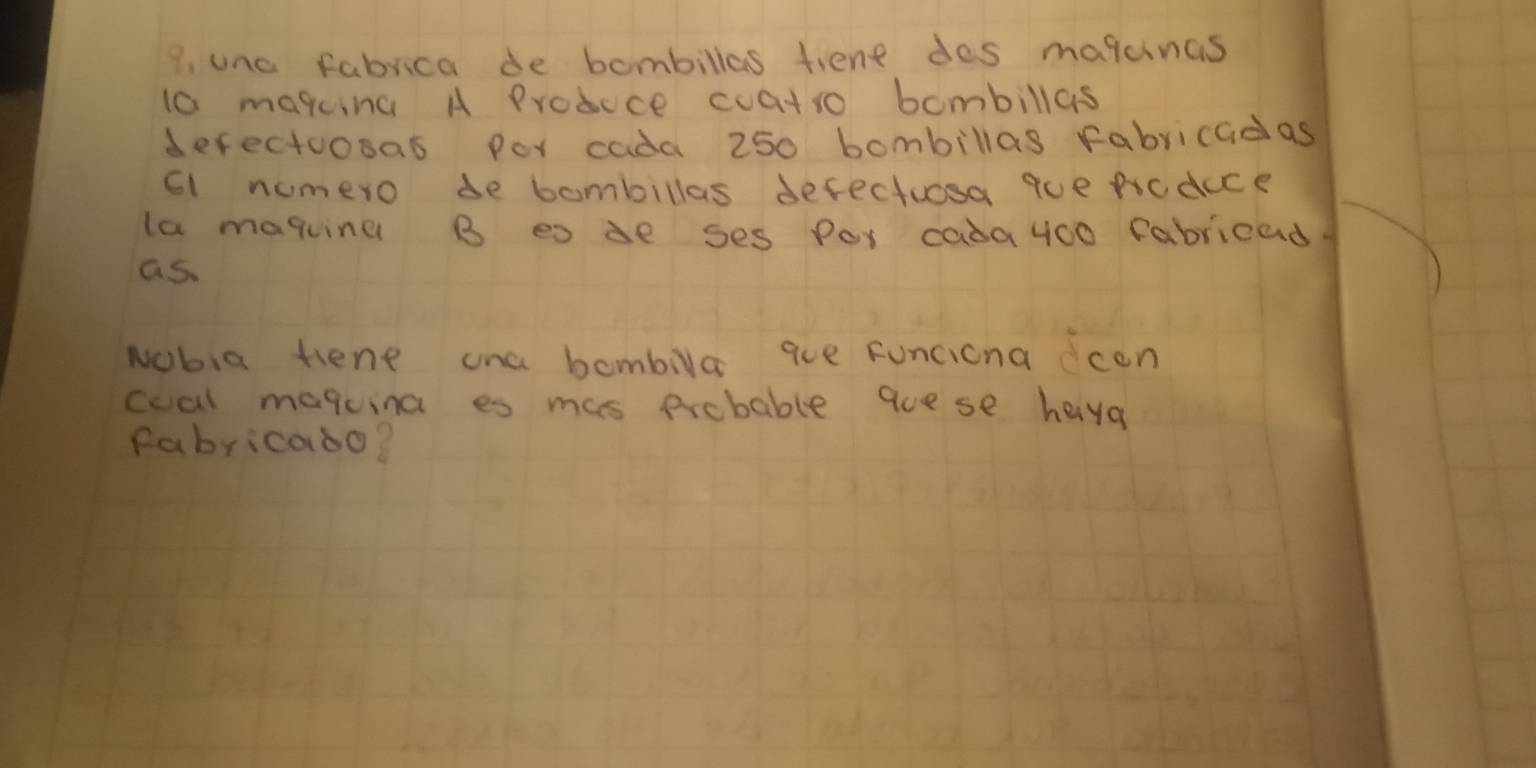 9. una fabrica de bombillas tiene dos maquinas
la maquina A Produce cuatro bombillas
defectuosas por cada 250 bombillas fabricadas
El numero de bombillas defectuosa que produce
la maquina B es de ses Por cada 400 fabricad-
as.
Nobia tiene una bombilla que funciona ¿con
cual maquina es mas Probable que se haya
fabricado?